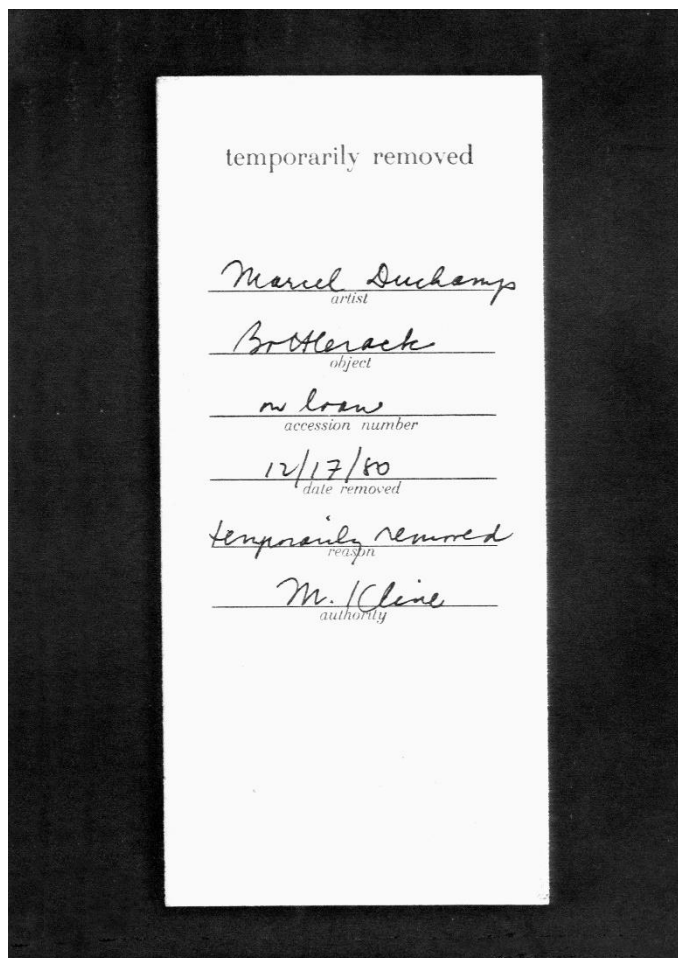 temporarily removed
Marcel Duchamp
artist
Bottlerack
object
on loan
accession number
12/17/80
date removed
temporarily removed
reason
M. Kline
authority